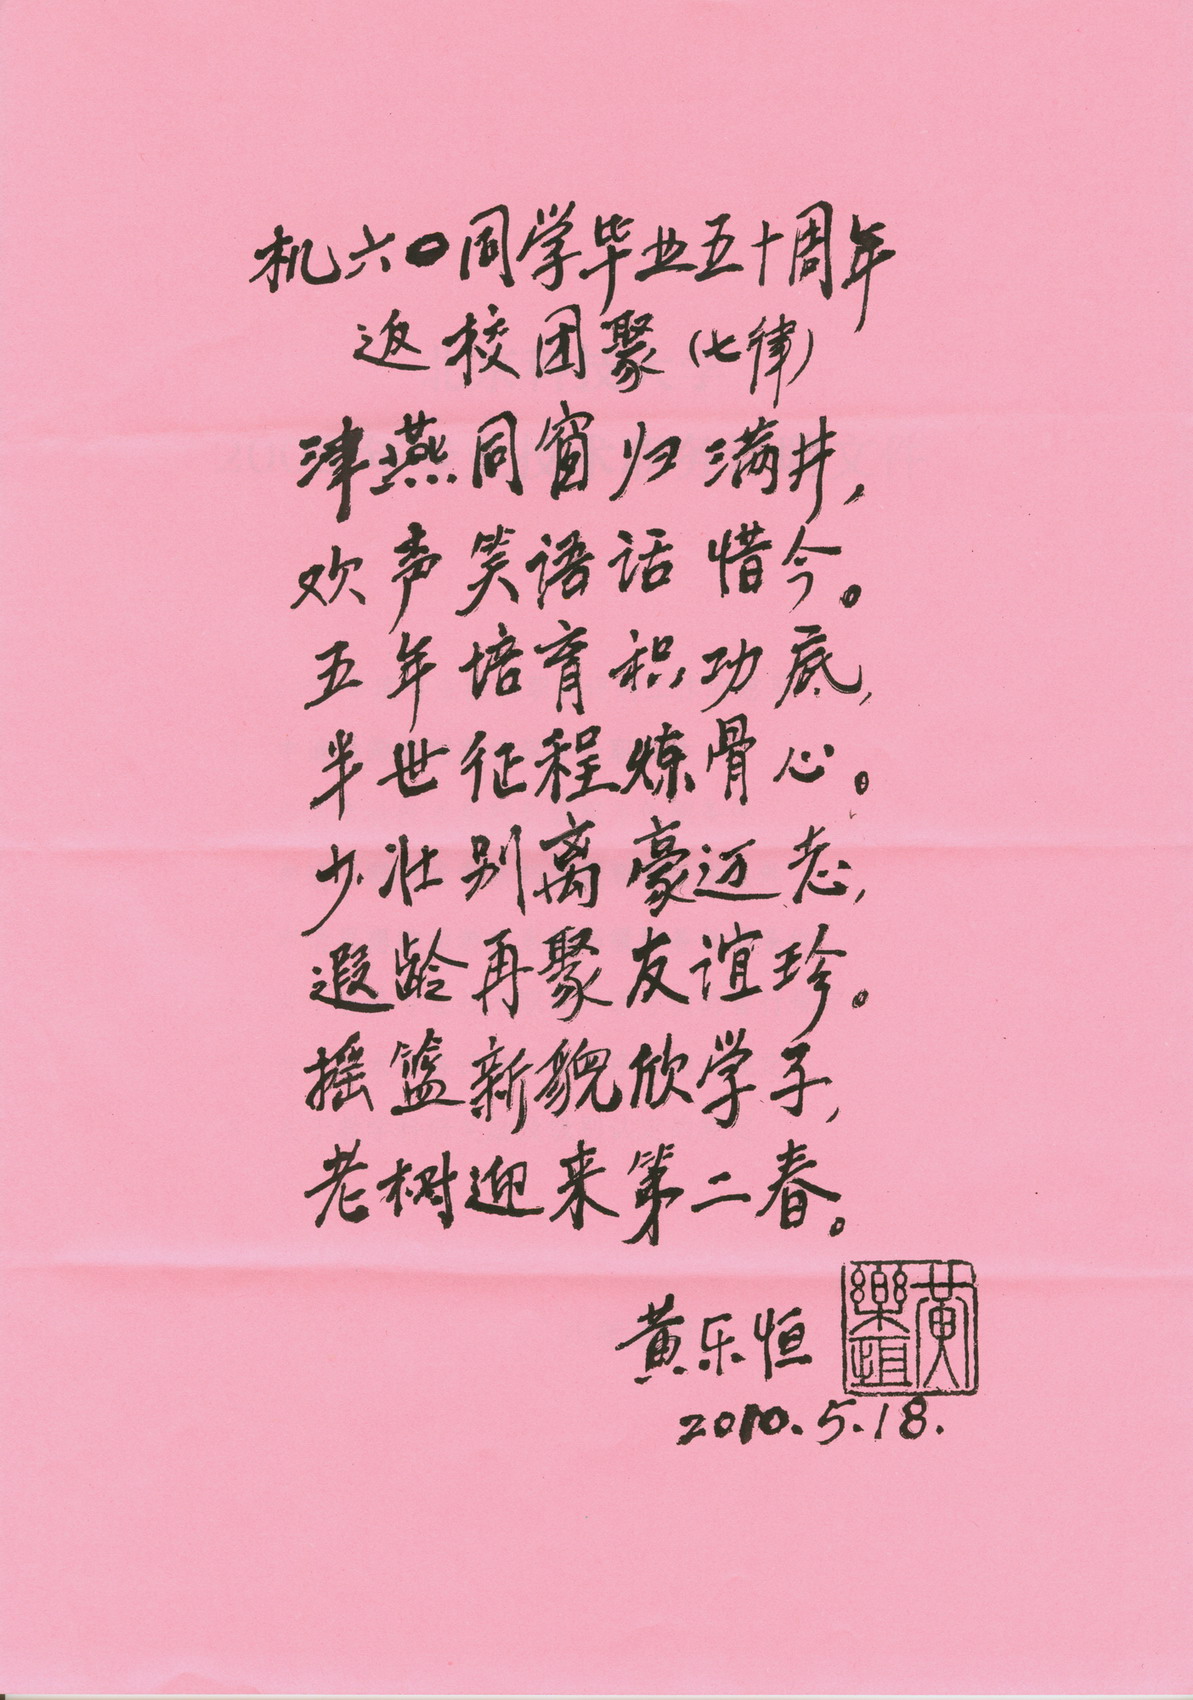 机六〇同学毕业五十周年
返校团聚(七律)
津燕同窗归满井,
欢声笑语话惜今。
五年培育积功底,
半世征程炼骨心。
少壮别离豪迈志,
遐龄再聚友谊珍。
摇篮新貌欣学子,
老树迎来第二春。
黄乐恒
黄樂恒
2010.5.18.